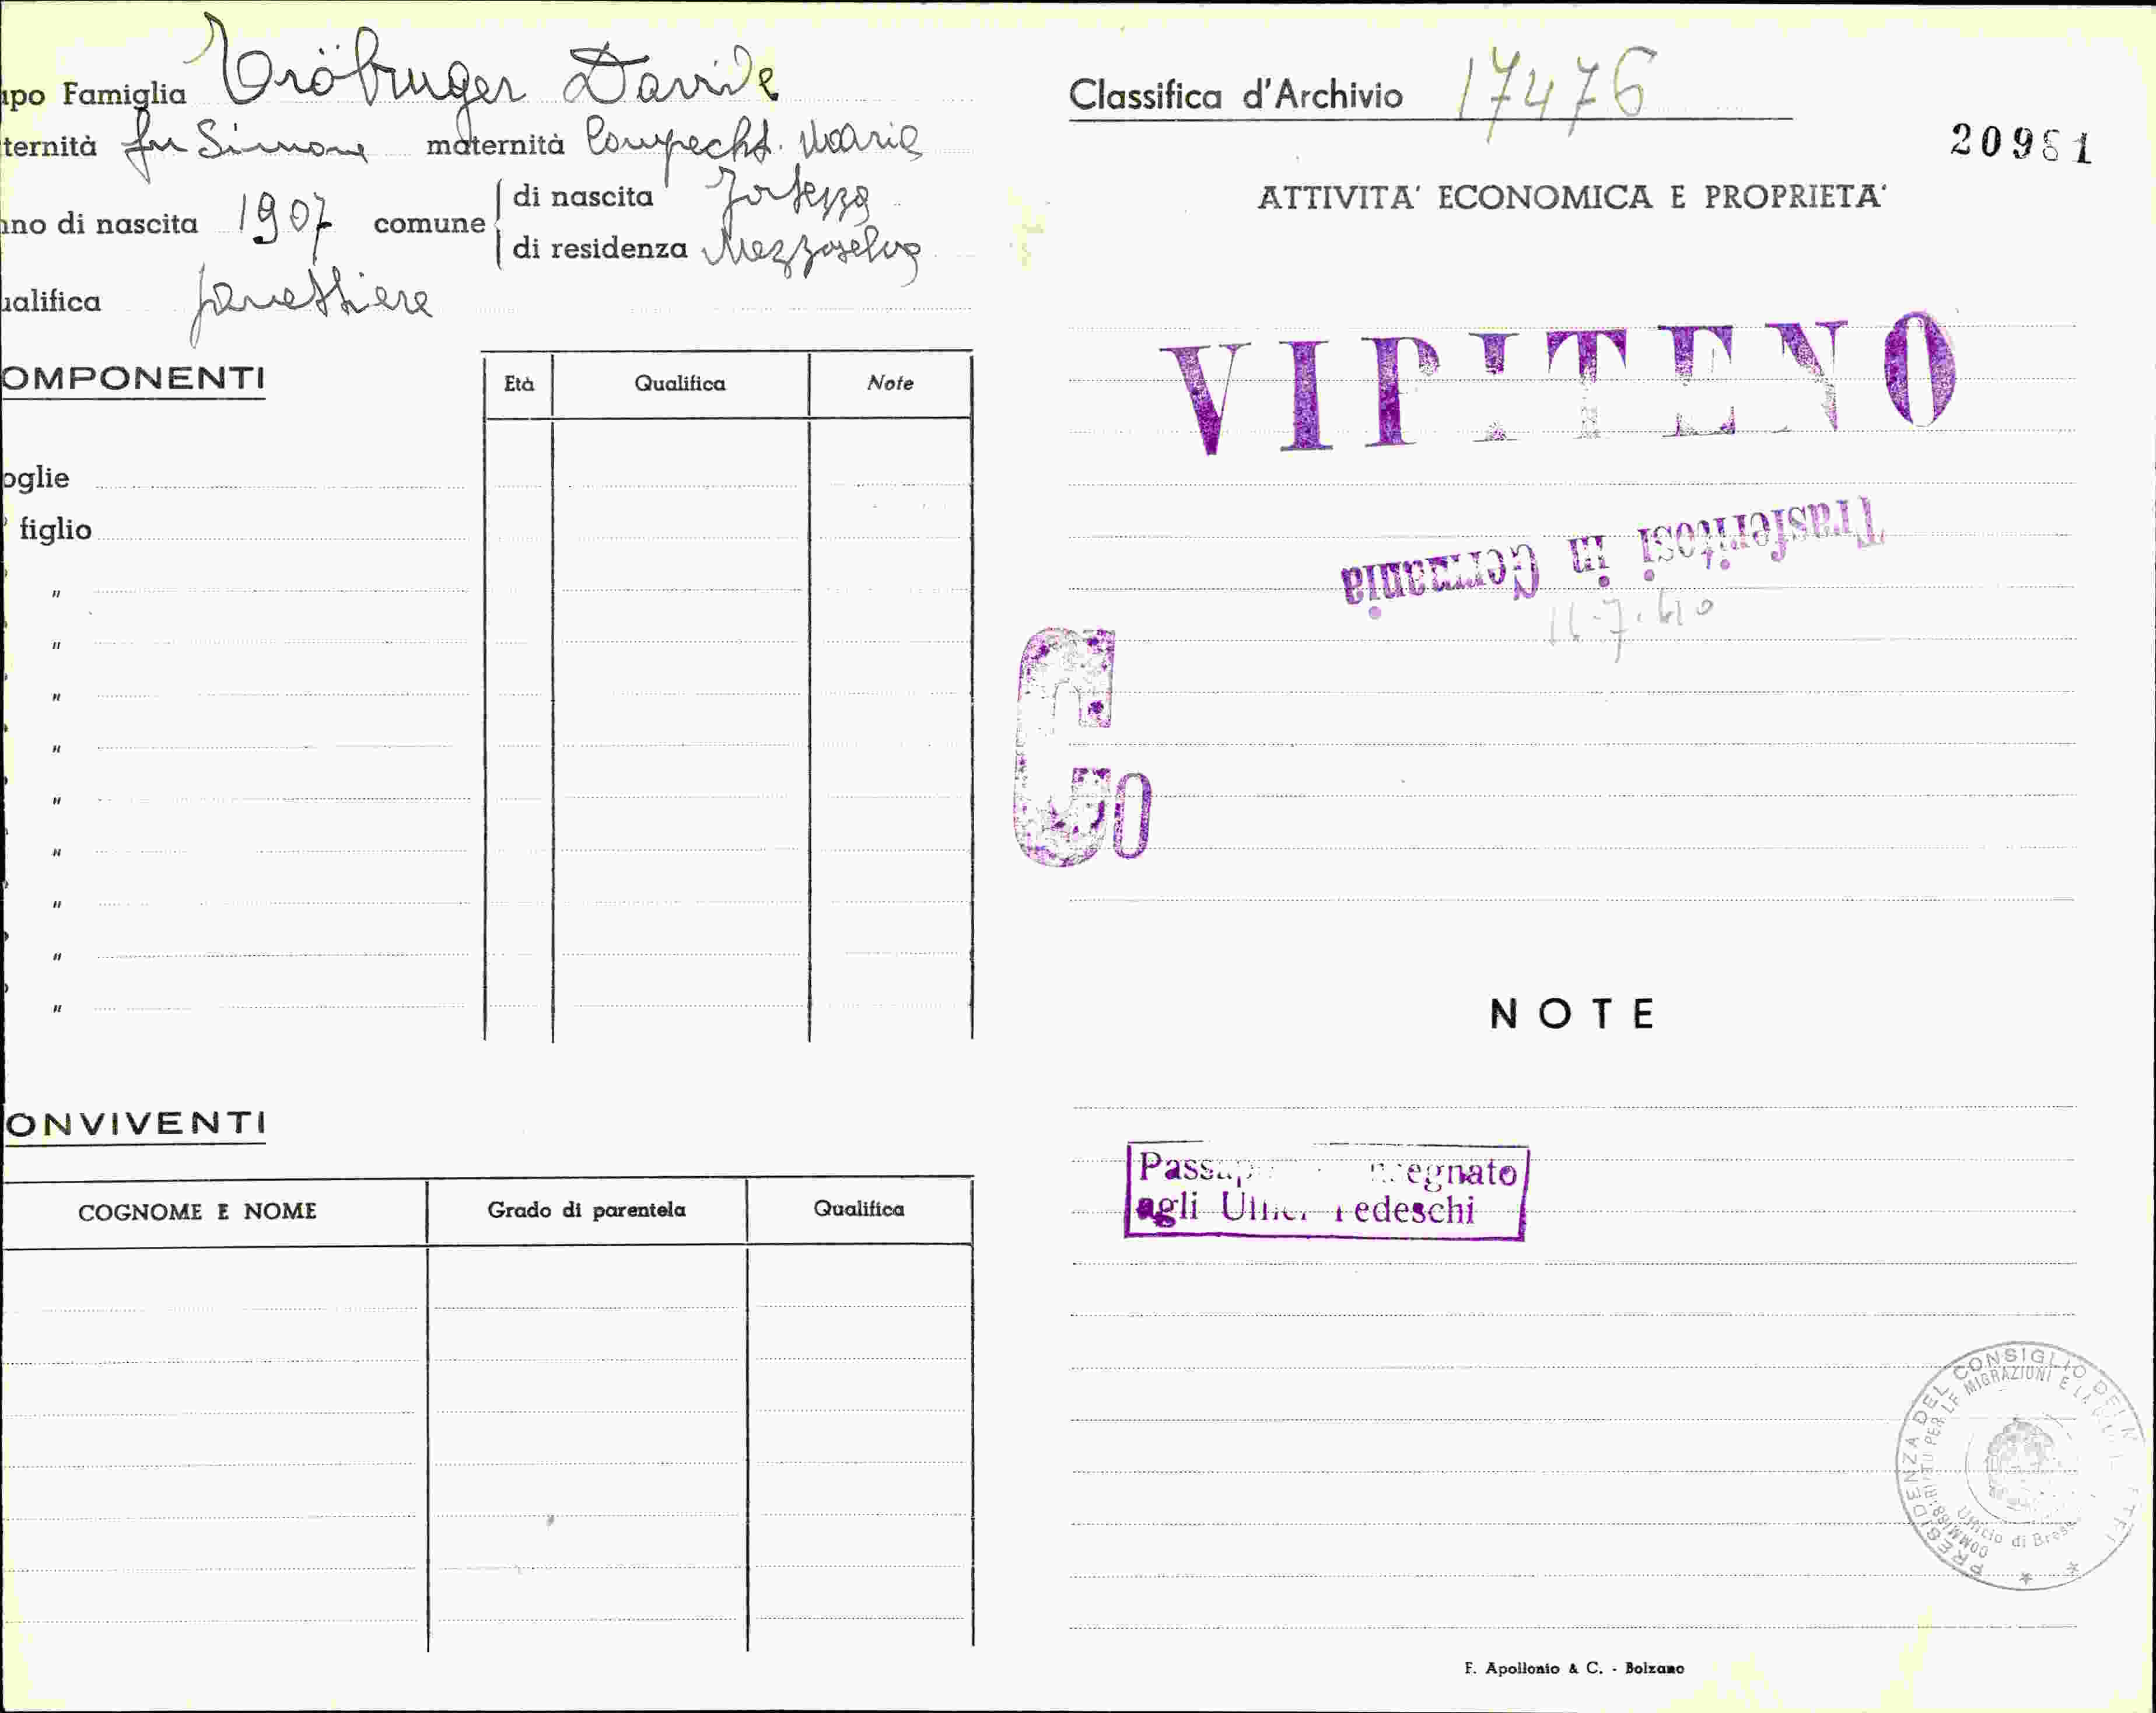 apo Famiglia Davide
ternità fu Simone maternità Maria
nno di nascita 1907 comune di nascita Fortezza
di residenza Mezzaselva
ualifica panettiere
OMPONENTI
Età Qualifica Note
oglie
figlio
"
"
"
"
"
"
"
"
"
ONVIVENTI
COGNOME E NOME Grado di parentela Qualifica
Classifica d'Archivio 17476
20981
ATTIVITA' ECONOMICA E PROPRIETA'
VIPITENO
Trasferitosi in Germania
11-7-40
G
0
NOTE
egnato
agli Tedeschi
PRESIDENZA DEL CONSIGLIO
PER LE MIGRAZIONI E LA
Ufficio di
F. Apollonio & C. - Bolzano